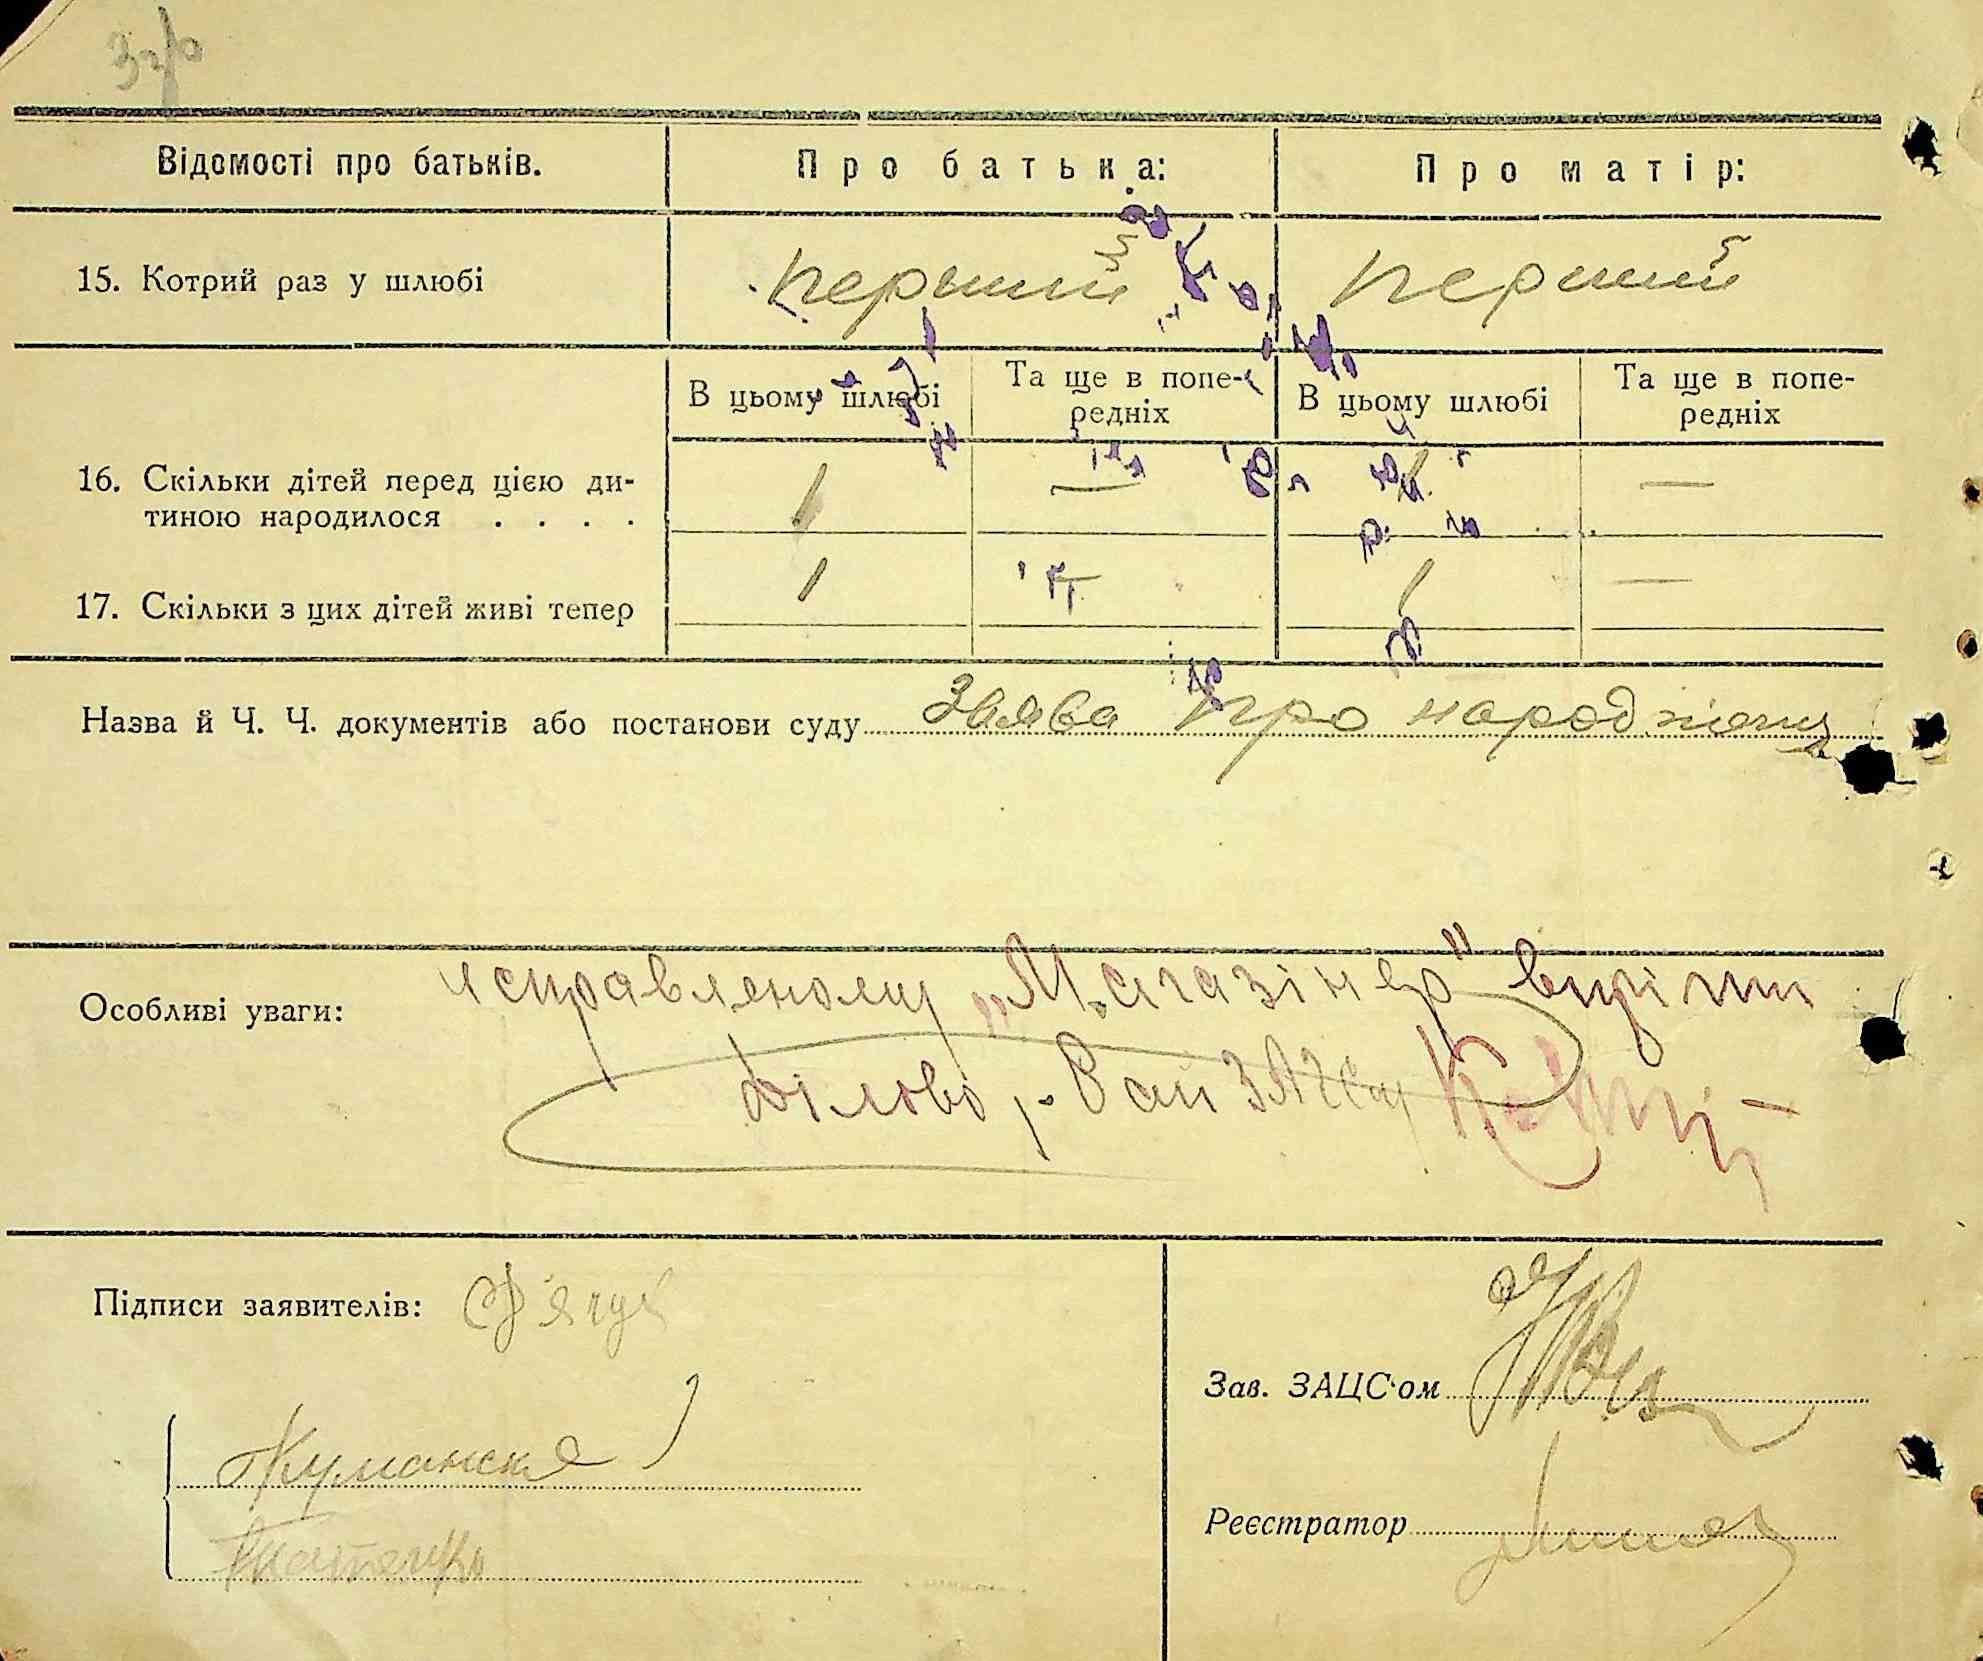 Відомості про батьків. Про батька: Про матір:
15. Котрий раз у шлюбі перший перший
В цьому шлюбі Та ще в попе-редніх В цьому шлюбі Та ще в попе-редніх
16. Скільки дітей перед цією ди- 1 — 1 —
тиною народилося . . . .
17. Скільки з цих дітей живі тепер 1 — 1 —
Назва й Ч. Ч. документів або постанови суду Заява про народження
Особливі уваги: исправленому „Магазінер" вірити
діловод РайЗАГСу
Підписи заявителів:
Зав. ЗАЦС'ом
Куманск
Реєстратор